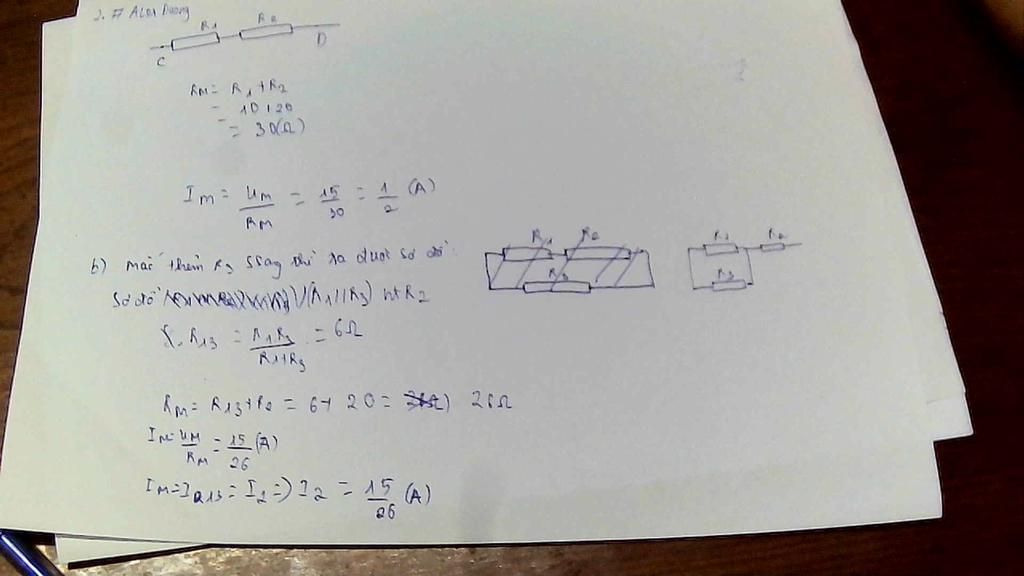 R1 R2
C D
RM = R1 + R2
= 10 + 20
= 30(Ω)
IM = UM/RM = 15/30 = 1/2 (A)
b) mắc thêm R3 ta được sơ đồ:
R1 R2
R3
R1 R2
R3
Sơ đồ (R1//R3) nt R2
R13 = R1R3/R1+R3 = 6Ω
RM = R13 + R2 = 6 + 20 = 26Ω
IM = UM/RM = 15/26 (A)
IM = I13 = I2 => I2 = 15/26 (A)